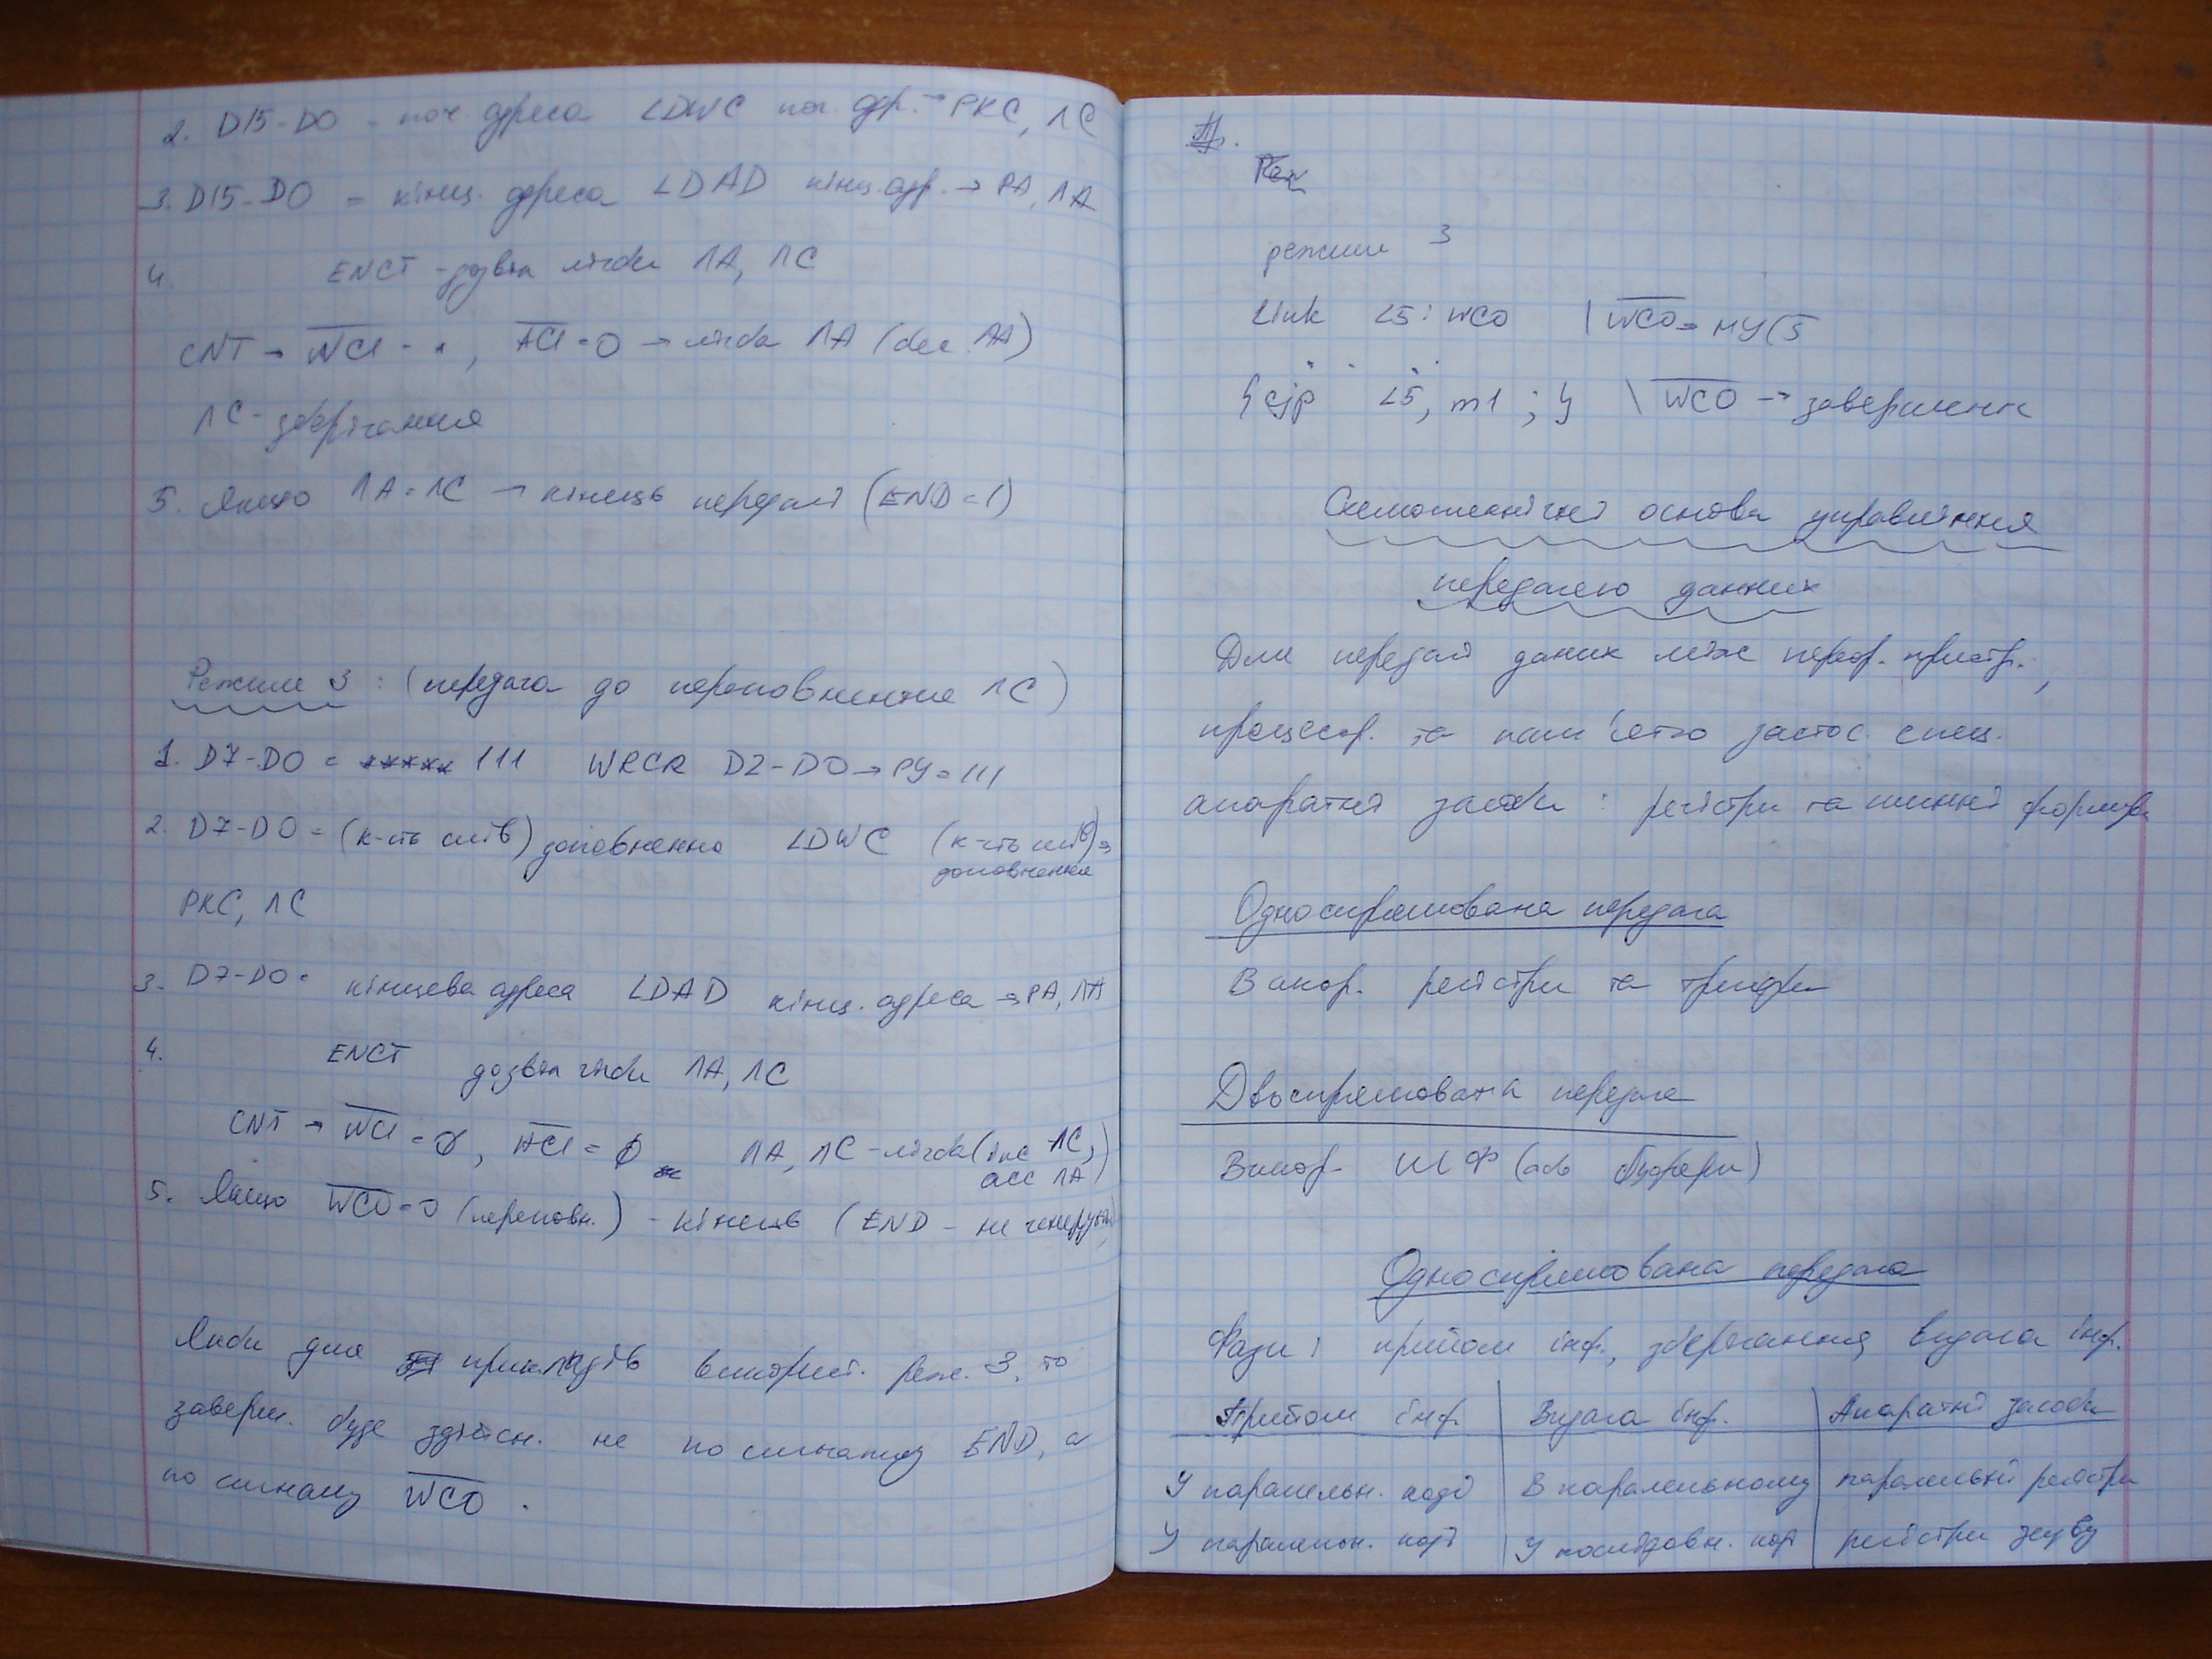 2. D15-D0 - поч. адреса LDWC поч. адр. → РКС, ЛС
3. D15-D0 = кінц. адреса LDAD кінц. адр. → РА, ЛА
4. ENCT - дозвіл лічби ЛА, ЛС
CNT → WCI = , ACI = 0 → лічба ЛА (dec ЛА)
ЛС - зберігання
5. Якщо ЛА = ЛС → кінець передачі (END = 1)
Режим 3 : (передача до переповнення ЛС)
1. D7-D0 = ***** 111 WRCR D2-D0 → РУ = 111
2. D7-D0 = (к-сть слів) доповнення LDWC (к-сть слів) →
доповнення
РКС, ЛС
3. D7-D0 = кінцева адреса LDAD кінц. адреса → РА, ЛА
4. ENCT дозвіл лічби ЛА, ЛС
CNT → WCI = 0, ACI = 0 ЛА, ЛС - лічба (inc ЛС,
ЛА)
5. Якщо WCO = 0 (переповн.) - кінець (END - не генерується)
Якби для прикладів використ. реж. 3, то
заверш. буде здійсн. не по сигналу END, а
по сигналу WCO.
Пр.
Реж
режим 3
Link L5: WCO \ WCO → МУ(5
{ cjp L5, m1 ; } \ WCO → завершення
Схемотехнічні основи управління
передачею данних
Для передачі даних між периф. пристр.,
процесор. та пам'яттю застос. спец.
апаратні засоби : регістри та шинні формув.
Односпрямована передача
Викор. регістри та тригери
Двоспрямована передача
Викор. ШФ (або буфери)
Односпрямована передача
Фази : прийом інф., зберігання, видача інф.
Прийом інф. Видача інф. Апаратні засоби
У паралельн. коді В паралельному паралельні регістри
У паралельн. коді У послідовн. коді регістри зсуву